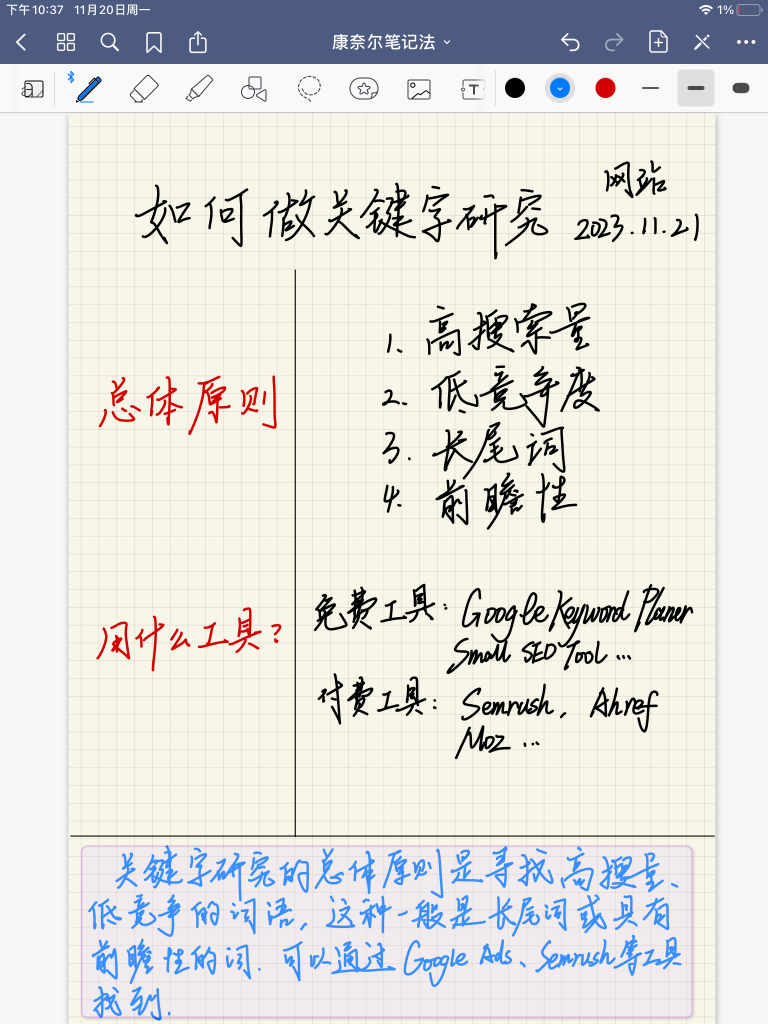 下午10:37 11月20日周一
1%
康奈尔笔记法
T
如何做关键字研究
网站
2023.11.21
总体原则
1. 高搜索量
2. 低竞争度
3. 长尾词
4. 前瞻性
用什么工具?
免费工具: Google Keyword Planer
Small SEO Tool ...
付费工具: Semrush, Ahref
Moz ...
关键字研究的总体原则是寻找高搜量、
低竞争的词语, 这种一般是长尾词或具有
前瞻性的词. 可以通过 Google Ads、Semrush等工具
找到.